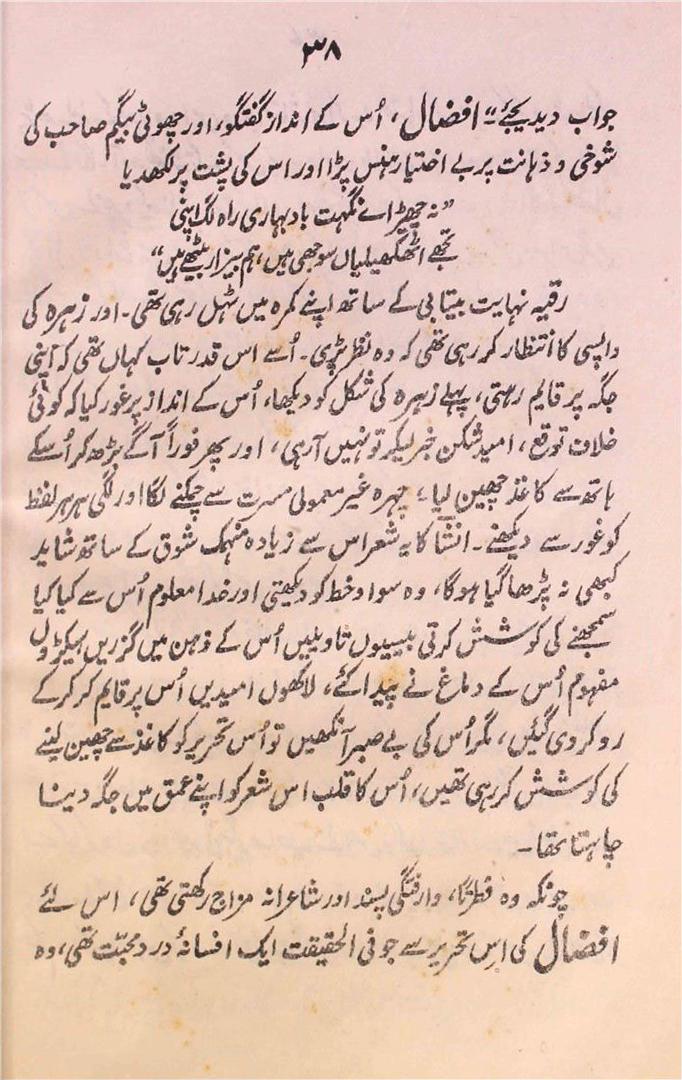 ۳۸
جواب دیدیجئے" افضال ، اُس کے انداز گفتگو، اور چھوٹی بیگم صاحب کی
شوخی و ذہانت پر بے اختیار ہنس پڑا اور اس کی پشت پر لکھدیا
"نہ چھیڑ اے نگہت باد بہاری راہ لگ اپنی
تجھے اٹھکھیلیاں سوجھی ہیں، ہم بیزار بیٹھے ہیں"
رقیہ نہایت بیتابی کے ساتھ اپنے کمرہ میں ٹہل رہی تھی۔ اور زہرہ کی
واپسی کا انتظار کر رہی تھی کہ وہ نظر پڑی۔ اُسے اس قدر تاب کہاں تھی کہ اپنی
جگہ پر قایم رہتی، پہلے زہرہ کی شکل کو دیکھا، اُس کے انداز پر غور کیا کہ کوئی
خلاف توقع ، امید شکن خبر لیکر تو نہیں آرہی ، اور پھر فوراً آگے بڑھ کر اُسکے
ہاتھ سے کاغذ چھین لیا ، چہرہ غیر معمولی مسرت سے چمکنے لگا اور لگی ہر ہر لفظ
کو غور سے دیکھنے۔ انشا کا یہ شعر اس سے زیادہ منہمک شوق کے ساتھ شاید
کبھی نہ پڑھا گیا ہوگا، وہ سواد خط کو دیکھتی اور خدا معلوم اُس سے کیا کیا
سمجھنے کی کوشش کرتی بیسیوں تاویلیں اُس کے ذہن میں گزریں سیکڑوں
مفہوم اُس کے دماغ نے پیدا کئے، لاکھوں امیدیں اُس پر قایم کر کر کے
رو کر دی گئیں، مگر اُس کی بے صبر آنکھیں تو اُس تحریر کو کاغذ سے چھین لینے
کی کوشش کر رہی تھیں، اُس کا قلب اس شعر کو اپنے عمق میں جگہ دینا
چاہتا تھا۔
چونکہ وہ فطرتاً، وارفتگی پسند اور شاعرانہ مزاج رکھتی تھی، اس لئے
افضال کی اِس تحریر سے جو فی الحقیقت ایک افسانۂ درد محبّت تھی، وہ